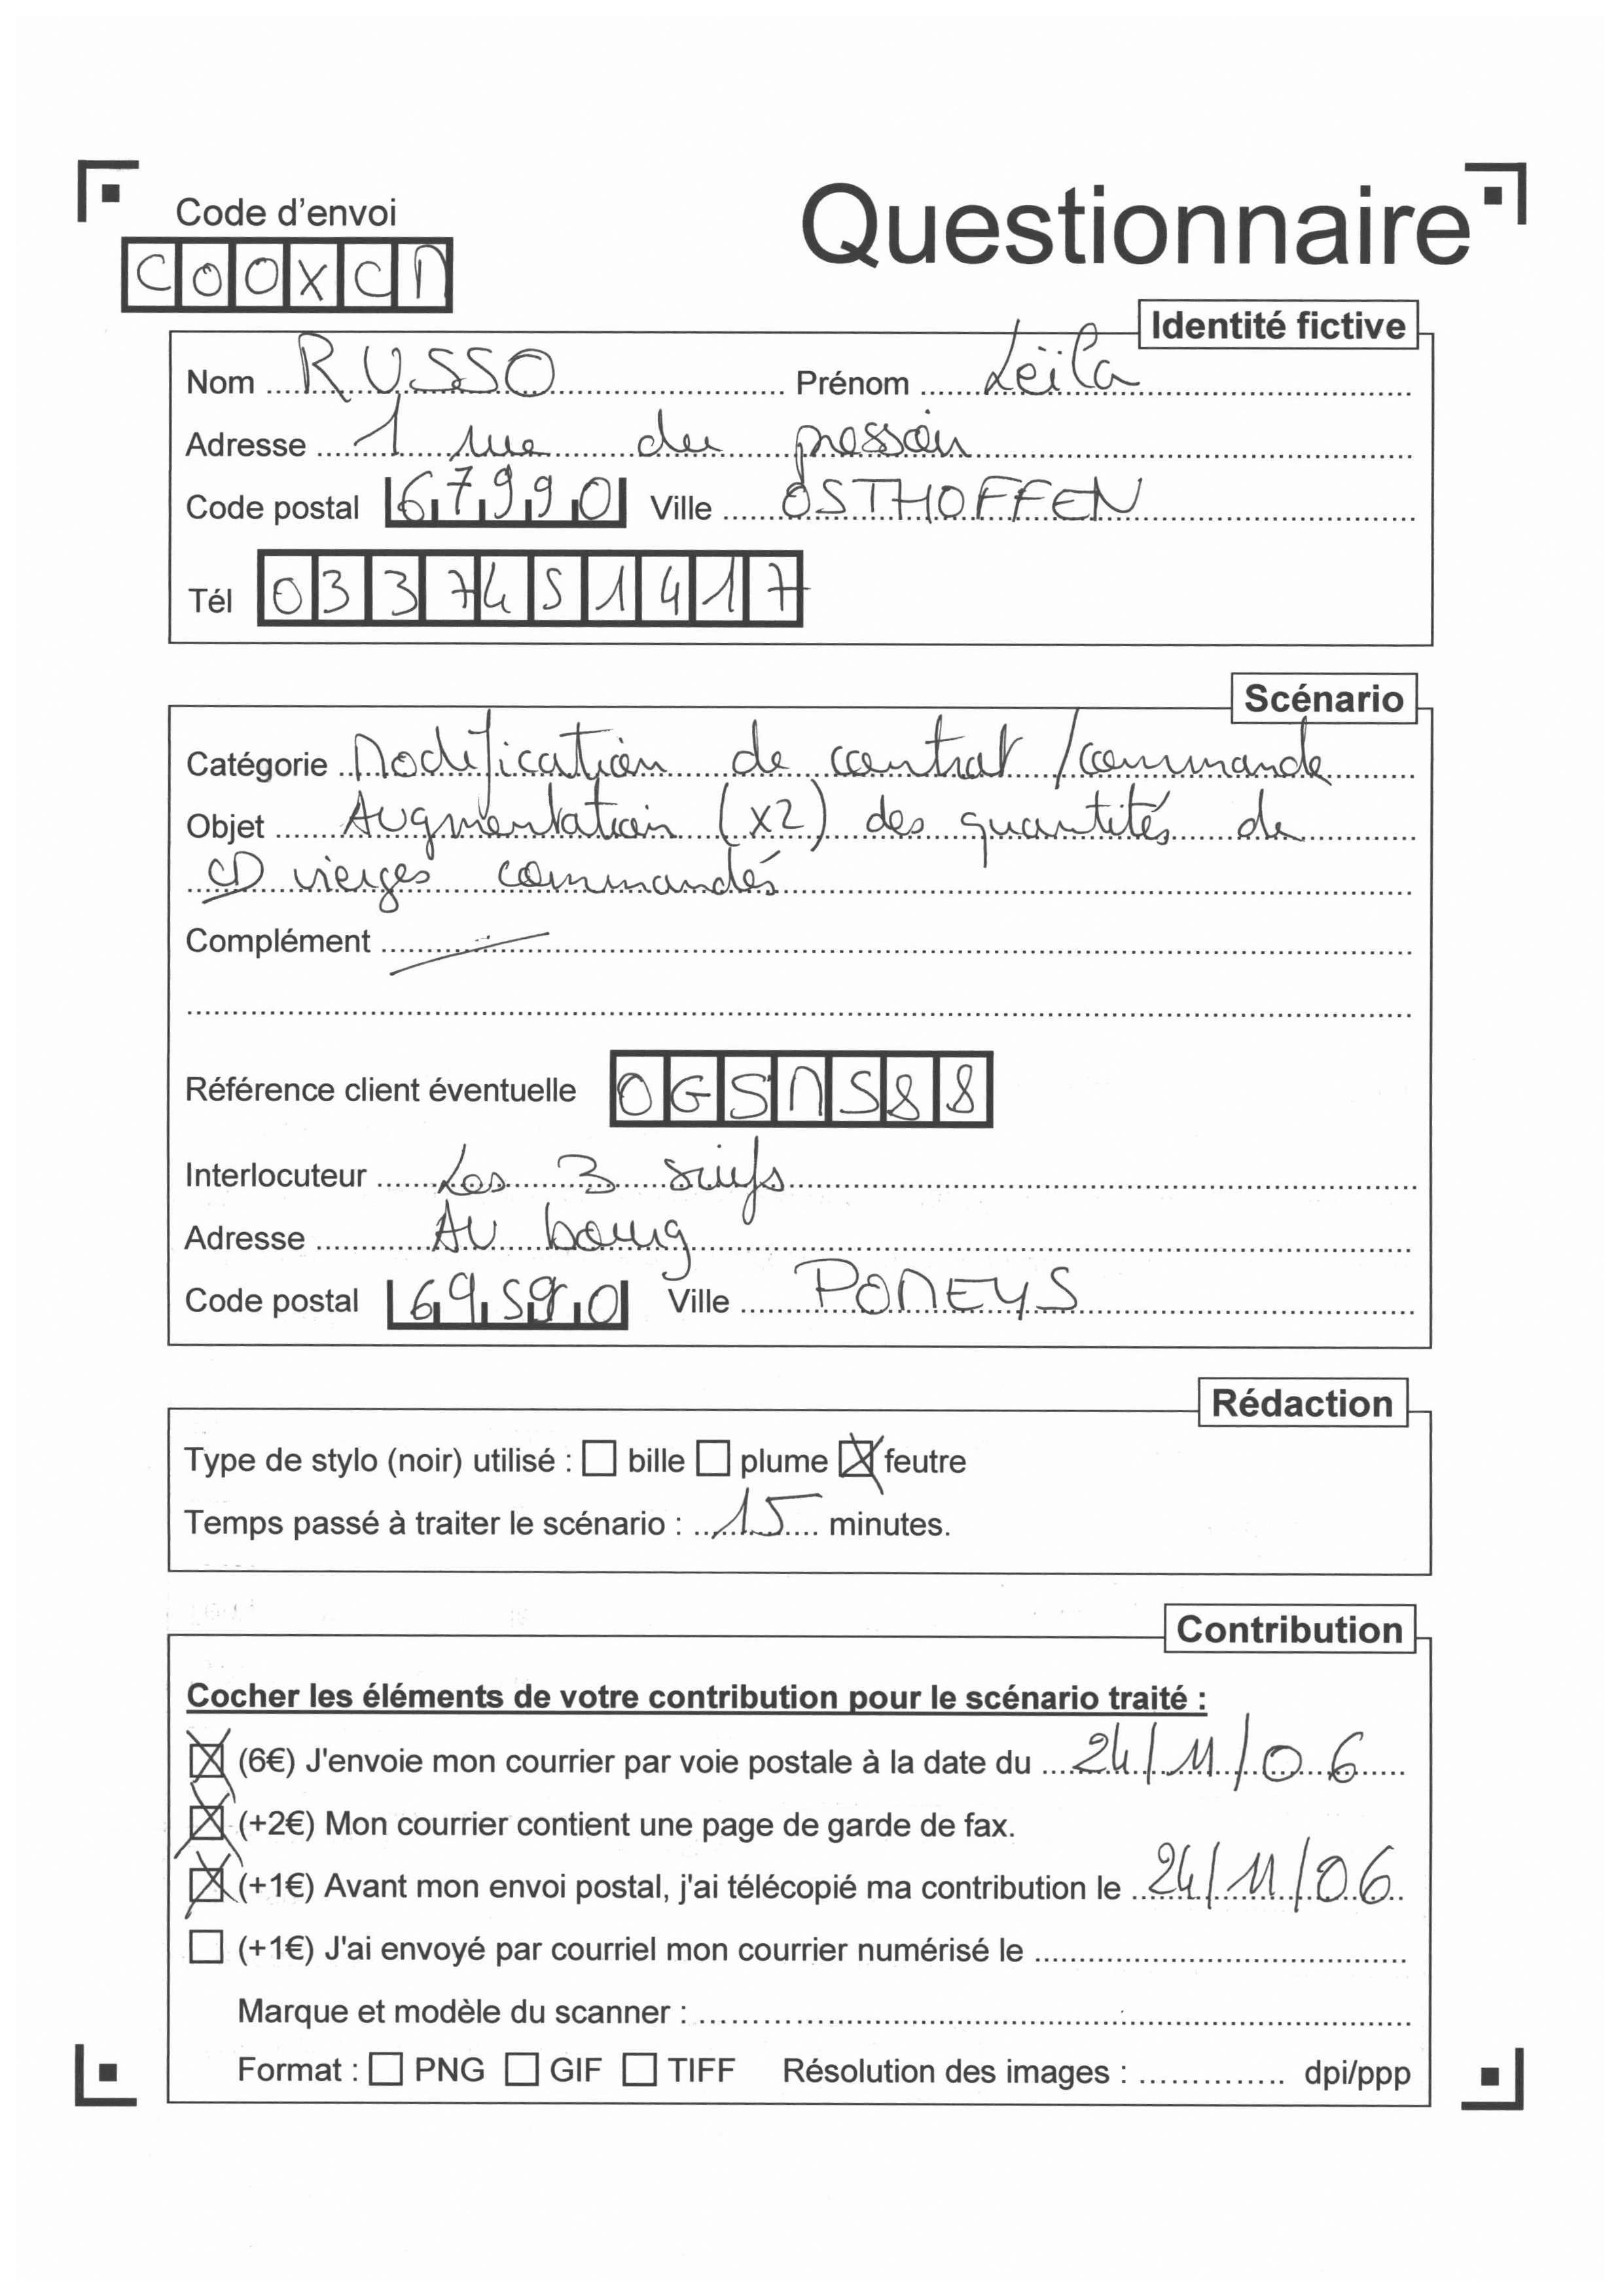 Questionnaire
Code d'envoi
COOXCM
Identité fictive
Nom RUSSO Prénom Leïla
Adresse 1 rue du pressoir
Code postal 67990 Ville OSTHOFFEN
Tél 0337451417
Scénario
Catégorie Modification de contrat / commande
Objet Augmentation (x2) des quantités de
CD vierges commandés
Complément
Référence client éventuelle OGSMS88
Interlocuteur Les 3 suifs
Adresse AU bourg
Code postal 69590 Ville POMEYS
Rédaction
Type de stylo (noir) utilisé : bille plume feutre
Temps passé à traiter le scénario : 15 minutes.
Contribution
Cocher les éléments de votre contribution pour le scénario traité :
(6€) J'envoie mon courrier par voie postale à la date du 24/11/06
(+2€) Mon courrier contient une page de garde de fax.
(+1€) Avant mon envoi postal, j'ai télécopié ma contribution le 24/11/06
(+1€) J'ai envoyé par courriel mon courrier numérisé le
Marque et modèle du scanner :
Format : PNG GIF TIFF Résolution des images : dpi/ppp